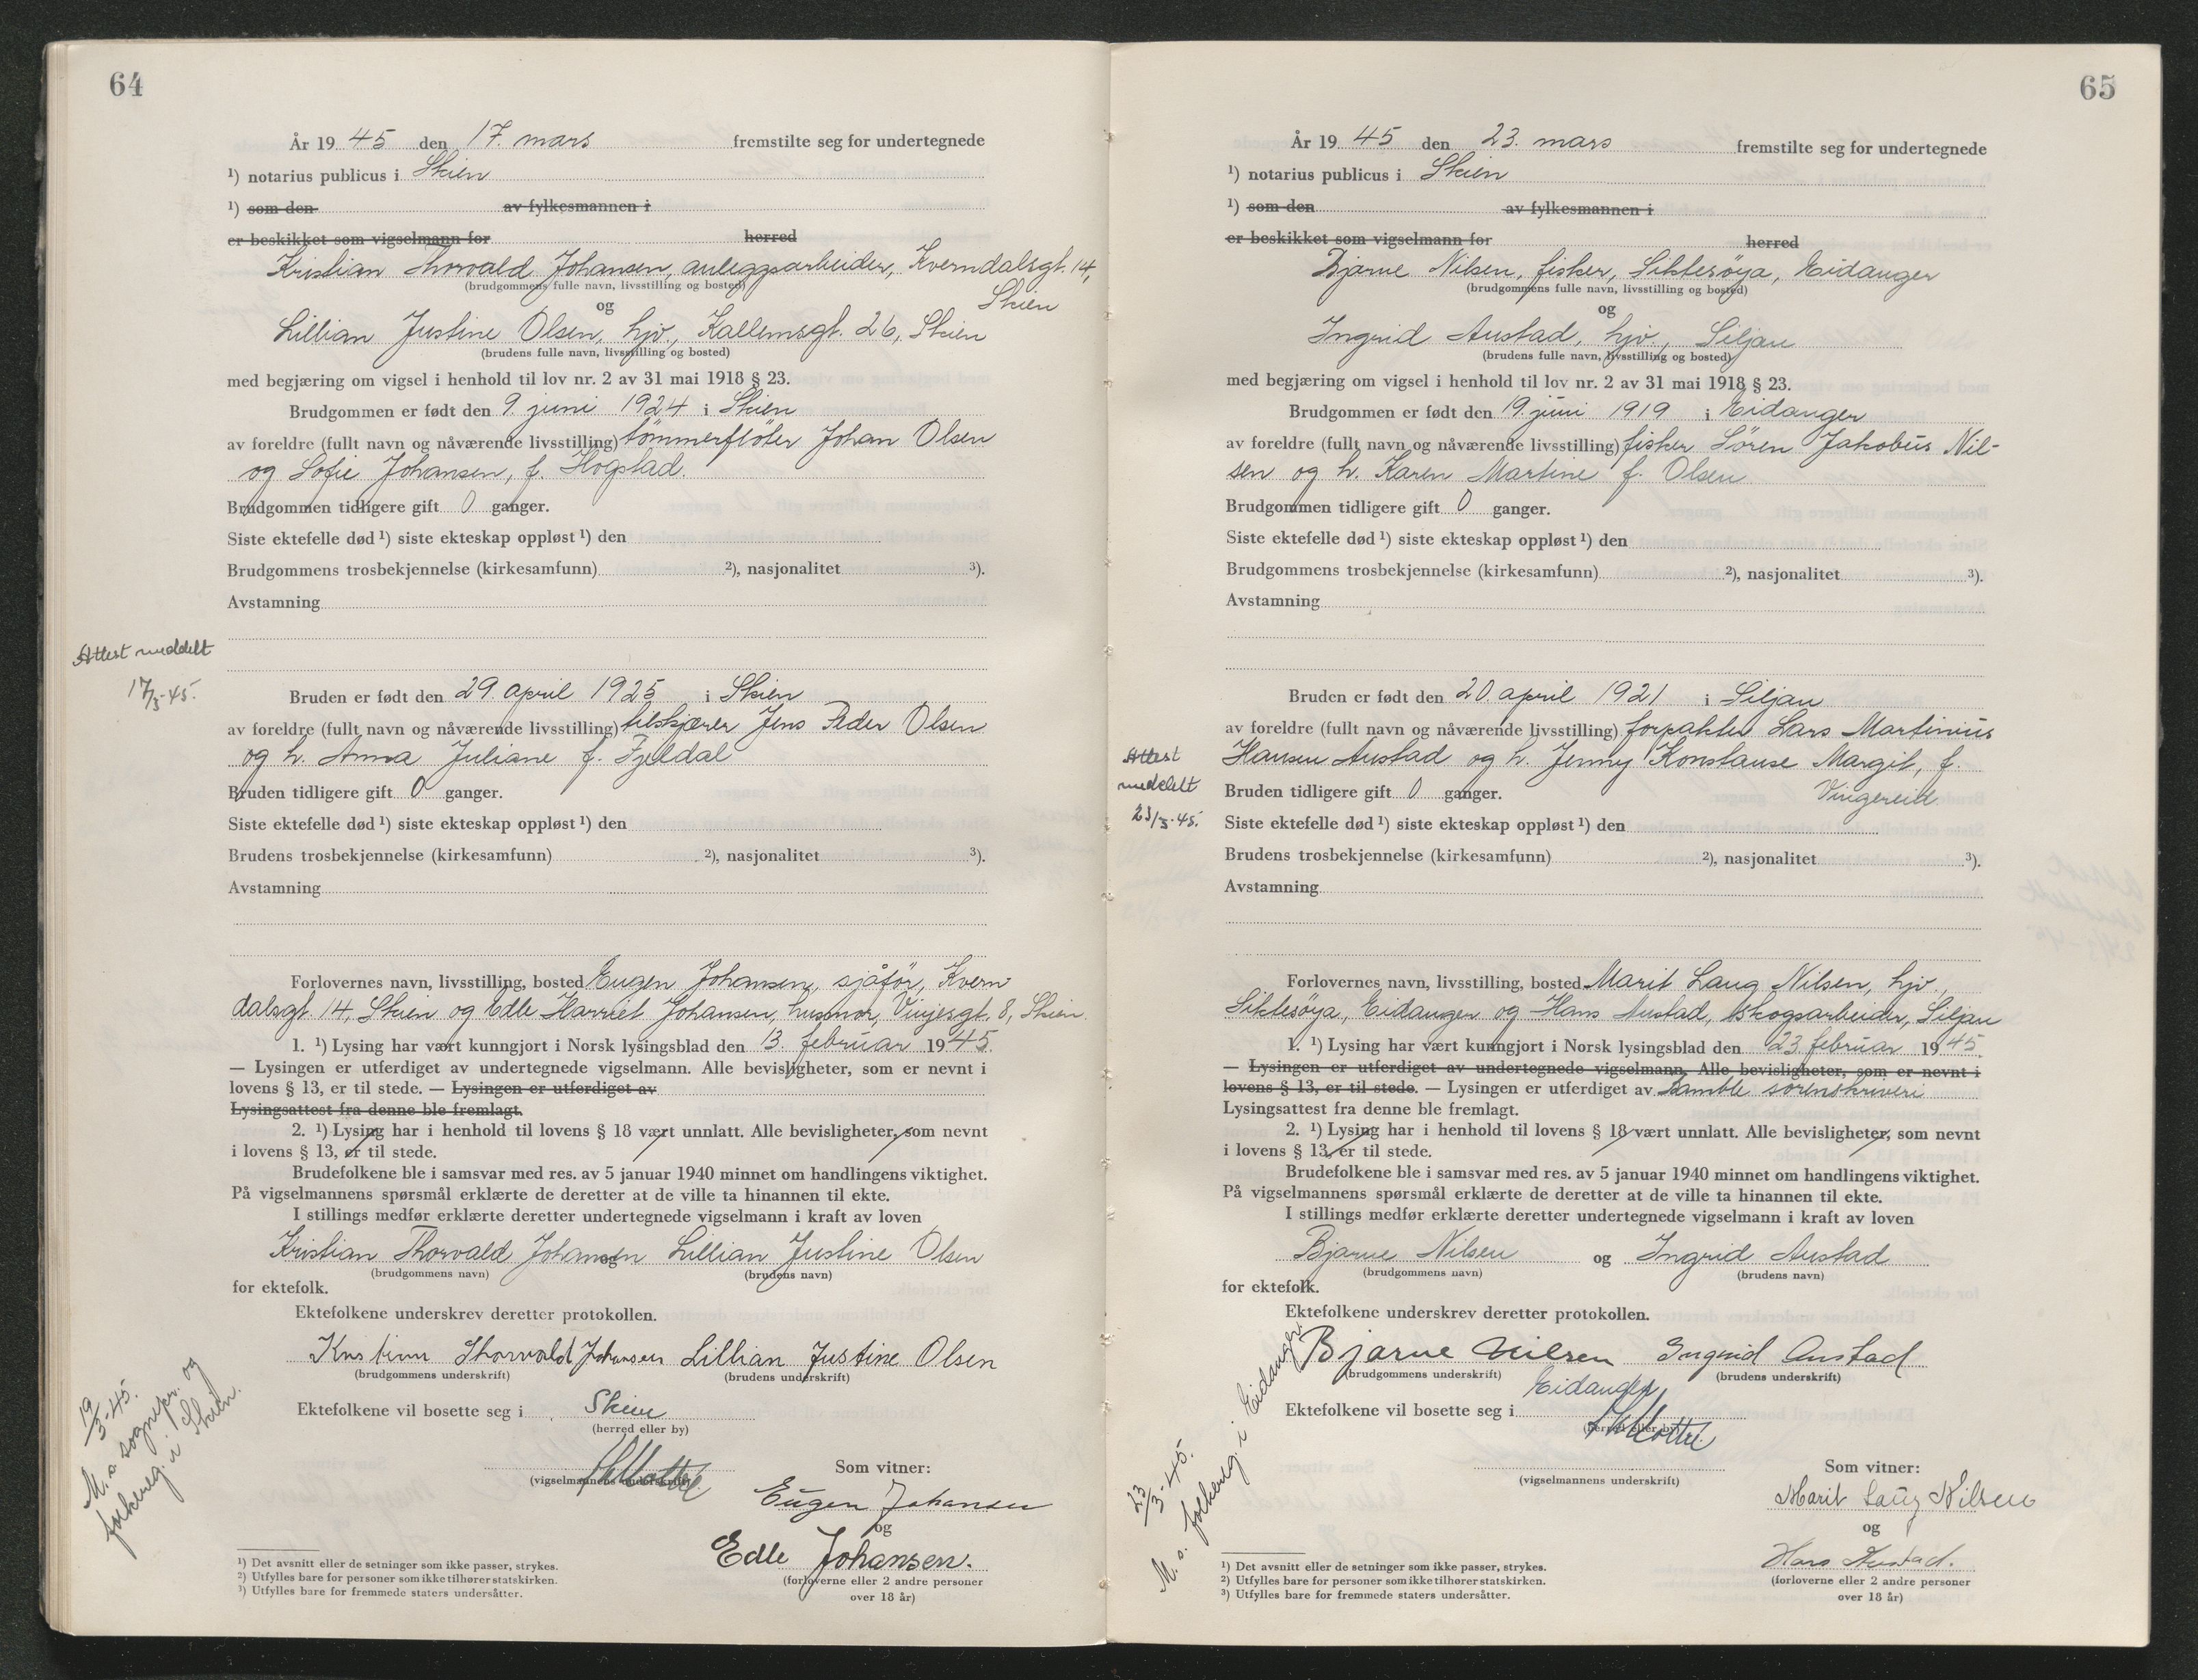 64
År 19 45 den 17. mars fremstilte seg for undertegnede
¹) notarius publicus i Skien
¹) som den av fylkesmannen i
er beskikket som vigselmann for herred
Kristian Thorvald Johansen, anleggsarbeider, Kverndalsgt. 14,
(brudgommens fulle navn, livsstilling og bosted)
Skien
og
Lillian Justine Olsen, hjv., Kallemsgt. 26, Skien
(brudens fulle navn, livsstilling og bosted)
med begjæring om vigsel i henhold til lov nr. 2 av 31 mai 1918 § 23.
Brudgommen er født den 9. juni 1924 i Skien
av foreldre (fullt navn og nåværende livsstilling) tømmerfløter Johan Olsen
og Sofie Johansen, f. Hogstad.
Brudgommen tidligere gift 0 ganger.
Siste ektefelle død ¹) siste ekteskap oppløst ¹) den
Brudgommens trosbekjennelse (kirkesamfunn) ²), nasjonalitet ³).
Avstamning
Attest meddelt
17/3-45.
Bruden er født den 29. april 1925 i Skien
av foreldre (fullt navn og nåværende livsstilling) tilskjærer Jens Peder Olsen
og h. Anna Juliane f. Fjeldal
Bruden tidligere gift 0 ganger.
Siste ektefelle død ¹) siste ekteskap oppløst ¹) den
Brudens trosbekjennelse (kirkesamfunn) ²), nasjonalitet ³).
Avstamning
Forlovernes navn, livsstilling, bosted Eugen Johansen, sjåfør, Kvern-
dalsgt. 14, Skien og Edle Harriet Johansen, husmor, Vinjesgt. 8, Skien.
1. ¹) Lysing har vært kunngjort i Norsk lysingsblad den 13. februar 19 45.
— Lysingen er utferdiget av undertegnede vigselmann. Alle bevisligheter, som er nevnt i
lovens § 13, er til stede. — Lysingen er utferdiget av
Lysingsattest fra denne ble fremlagt.
2. ¹) Lysing har i henhold til lovens § 18 vært unnlatt. Alle bevisligheter, som nevnt
i lovens § 13, er til stede.
Brudefolkene ble i samsvar med res. av 5 januar 1940 minnet om handlingens viktighet.
På vigselmannens spørsmål erklærte de deretter at de ville ta hinannen til ekte.
I stillings medfør erklærte deretter undertegnede vigselmann i kraft av loven
Kristian Thorvald Johansen og Lillian Justine Olsen
(brudgommens navn) (brudens navn)
for ektefolk.
Ektefolkene underskrev deretter protokollen.
Kristian Thorvald Johansen Lillian Justine Olsen
(brudgommens underskrift) (brudens underskrift)
Ektefolkene vil bosette seg i Skien
(herred eller by)
19/3-45.
M. s. sognepr. og
folkereg. i Skien.
(vigselmannens underskrift)
Som vitner:
Eugen Johansen
og
Edle Johansen.
(forloverne eller 2 andre personer
over 18 år)
¹) Det avsnitt eller de setninger som ikke passer, strykes.
²) Utfylles bare for personer som ikke tilhører statskirken.
³) Utfylles bare for fremmede staters undersåtter.
65
År 19 45 den 23. mars fremstilte seg for undertegnede
¹) notarius publicus i Skien
¹) som den av fylkesmannen i
er beskikket som vigselmann for herred
Bjarne Nilsen, fisker, Siktesøya, Eidanger
(brudgommens fulle navn, livsstilling og bosted)
og
Ingrid Austad, hjv., Siljan
(brudens fulle navn, livsstilling og bosted)
med begjæring om vigsel i henhold til lov nr. 2 av 31 mai 1918 § 23.
Brudgommen er født den 19. juni 1919 i Eidanger
av foreldre (fullt navn og nåværende livsstilling) fisker Søren Jakobus Nil-
sen og h. Karen Martine f. Olsen
Brudgommen tidligere gift 0 ganger.
Siste ektefelle død ¹) siste ekteskap oppløst ¹) den
Brudgommens trosbekjennelse (kirkesamfunn) ²), nasjonalitet ³).
Avstamning
Bruden er født den 20. april 1921 i Siljan
av foreldre (fullt navn og nåværende livsstilling) forpakter Lars Martinius
Hansen Austad og h. Jenny Konstanse Margit, f.
Vingereid
Attest
meddelt
23/3-45.
Bruden tidligere gift 0 ganger.
Siste ektefelle død ¹) siste ekteskap oppløst ¹) den
Brudens trosbekjennelse (kirkesamfunn) ²), nasjonalitet ³).
Avstamning
Forlovernes navn, livsstilling, bosted Marit Laug Nilsen, hjv.,
Siktesøya, Eidanger og Hans Austad, skogsarbeider, Siljan
1. ¹) Lysing har vært kunngjort i Norsk lysingsblad den 23. februar 19 45.
— Lysingen er utferdiget av undertegnede vigselmann. Alle bevisligheter, som er nevnt i
lovens § 13, er til stede. — Lysingen er utferdiget av Bamble sorenskriveri
Lysingsattest fra denne ble fremlagt.
2. ¹) Lysing har i henhold til lovens § 18 vært unnlatt. Alle bevisligheter, som nevnt
i lovens § 13, er til stede.
Brudefolkene ble i samsvar med res. av 5 januar 1940 minnet om handlingens viktighet.
På vigselmannens spørsmål erklærte de deretter at de ville ta hinannen til ekte.
I stillings medfør erklærte deretter undertegnede vigselmann i kraft av loven
Bjarne Nilsen og Ingrid Austad
(brudgommens navn) (brudens navn)
for ektefolk.
Ektefolkene underskrev deretter protokollen.
Bjarne Nilsen Ingrid Austad
(brudgommens underskrift) (brudens underskrift)
Ektefolkene vil bosette seg i Eidanger
(herred eller by)
23/3-45.
M. s. folkereg. i Eidanger
(vigselmannens underskrift)
Som vitner:
Marit Laug Nilsen
og
Hans Austad.
(forloverne eller 2 andre personer
over 18 år)
¹) Det avsnitt eller de setninger som ikke passer, strykes.
²) Utfylles bare for personer som ikke tilhører statskirken.
³) Utfylles bare for fremmede staters undersåtter.